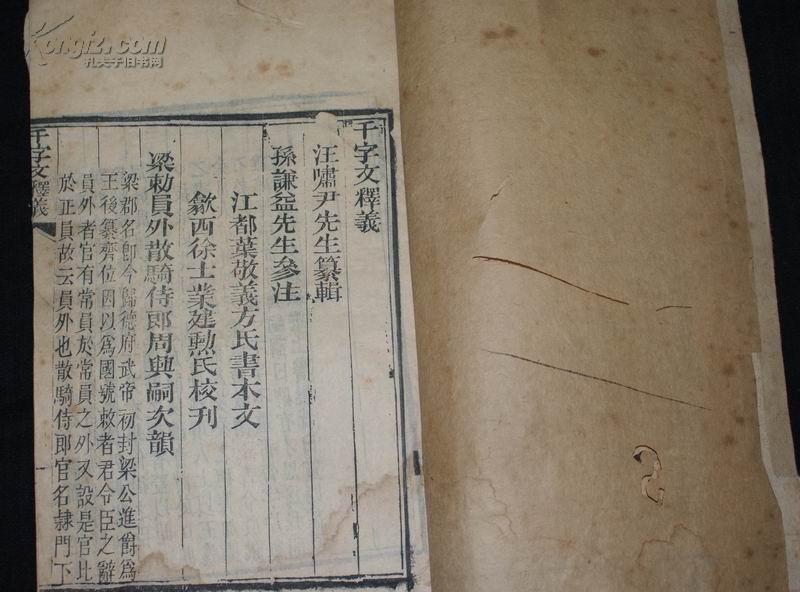 千字文釋義
汪嘯尹先生纂輯
孫謙益先生參注
江都葉敬義方氏書本文
歙西徐士業建勲氏校刊
梁敕員外散騎侍郎周興嗣次韻
梁郡名卽今歸德府武帝初封梁公進爵爲
王後纂齊位因以爲國號敕者君令臣之辭
員外者官有常員於常員之外又設是官比
於正員故云員外也散騎侍郎官名隷門下
千字文釋義
Kongfz.com
孔夫子旧书网